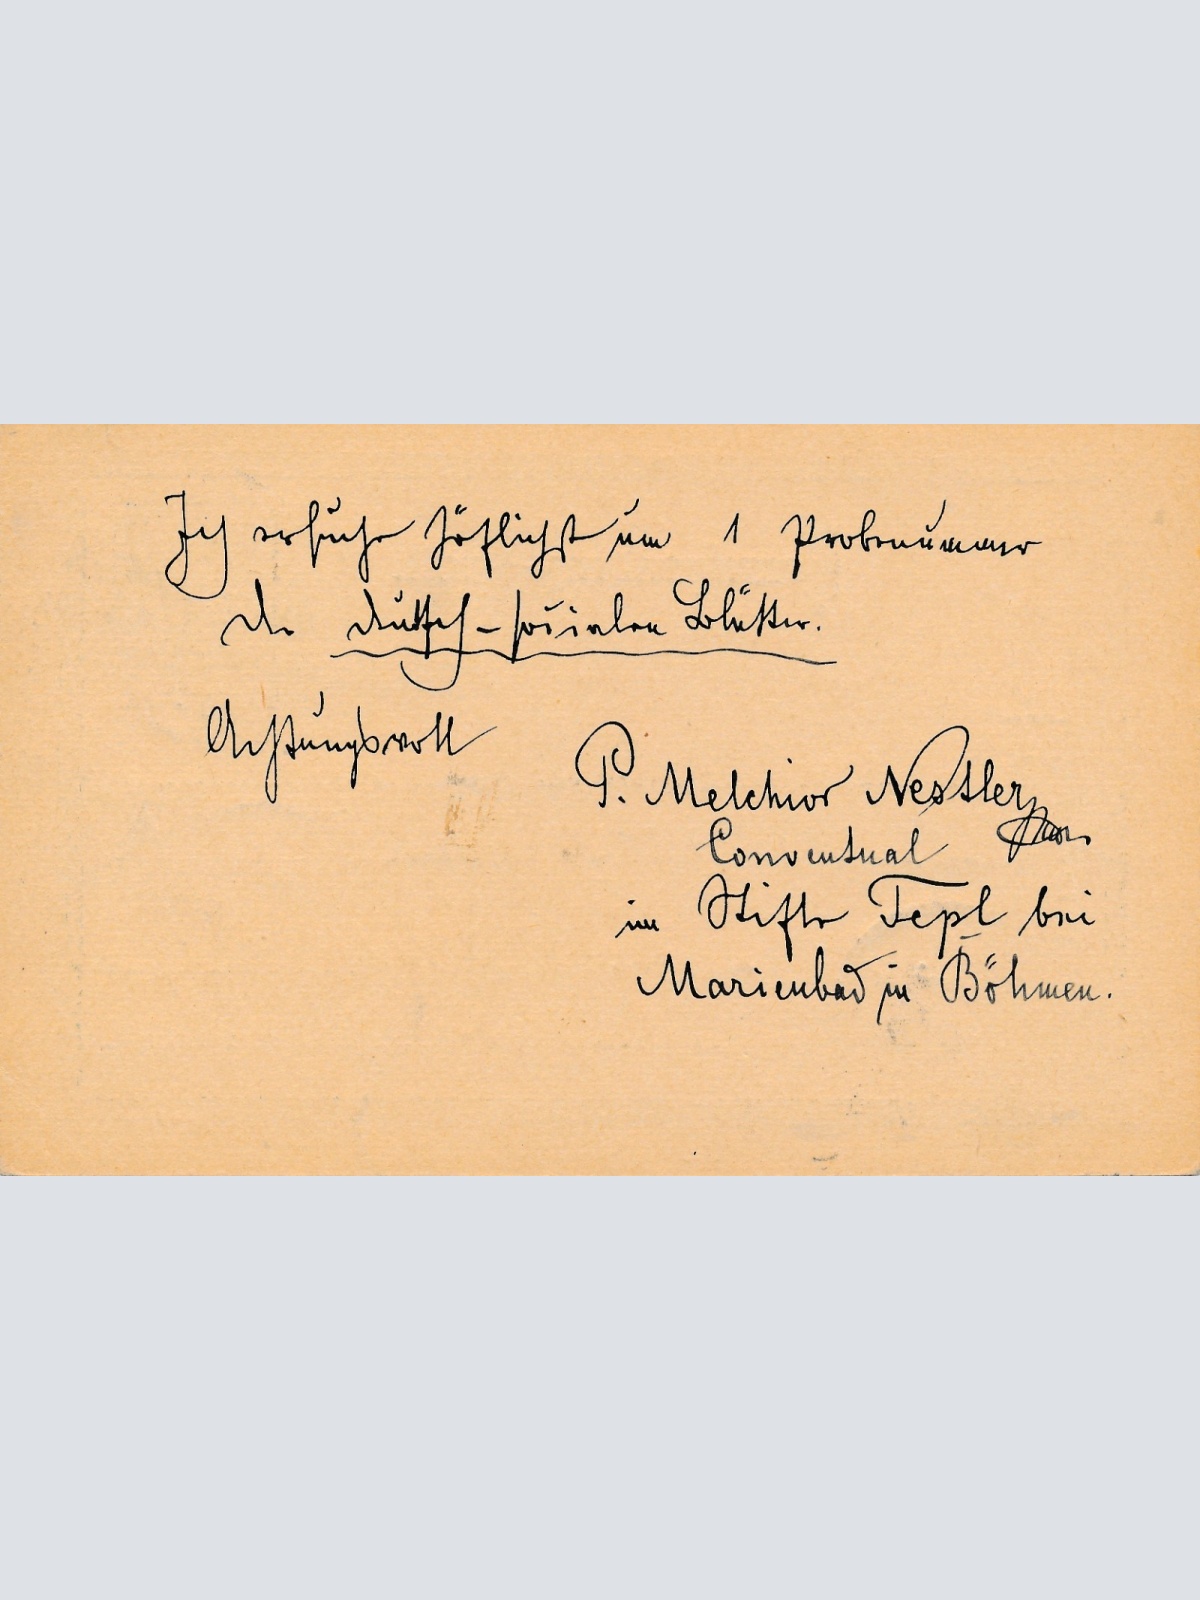 Ich ersuche höflichst um 1 Probenummer
der deutsch-socialen Blätter.
Achtungsvoll
P. Melchior Nestler
Conventual
im Stifte Tepl bei
Marienbad in Böhmen.